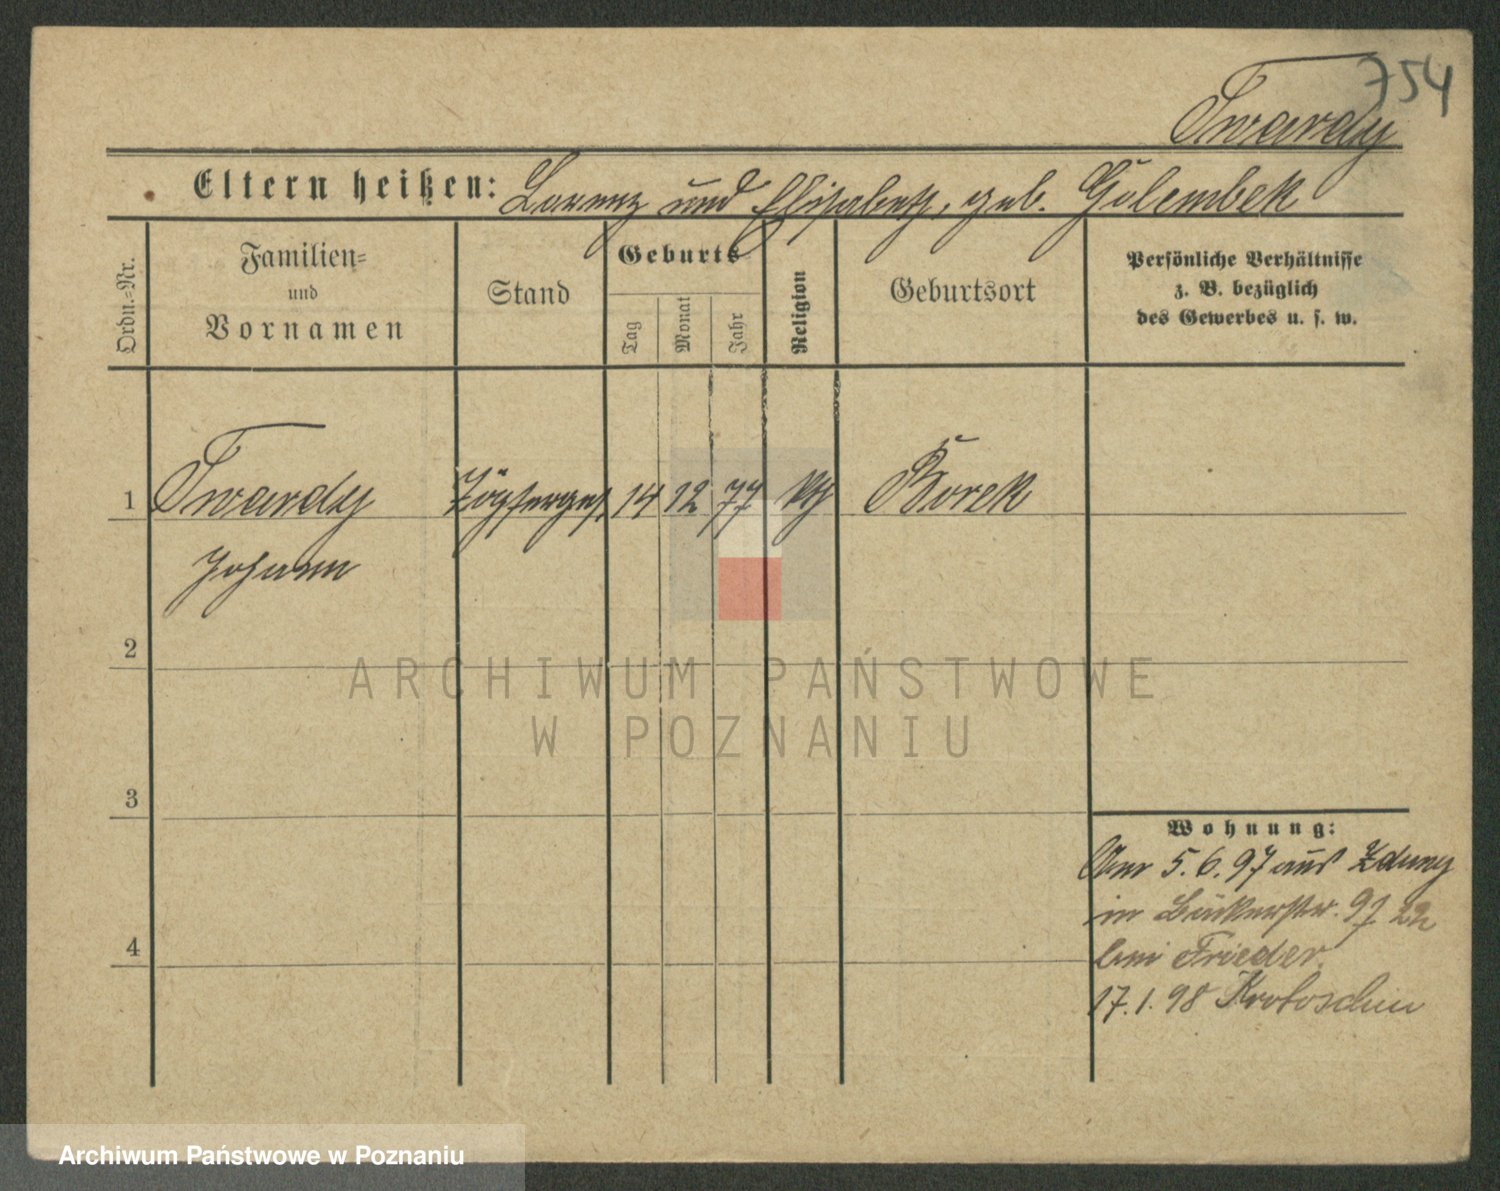 754
Twardy
Eltern heißen: Lorenz und Elisabeth, geb. Golembek
Ordn.=Nr.
Familien=
und
Vornamen
Stand
Geburts
Tag
Monat
Jahr
Religion
Geburtsort
Persönliche Verhältnisse
z. B. bezüglich
des Gewerbes u. s. w.
1 Twardy Töpferges. 14 12 77 kth Borek
Johann
2
3
4
Wohnung:
Am 5.6.97 aus Zduny
in Bäckerstr. 97
bei Frieder.
17.1.98 Krotoschin
ARCHIWUM PAŃSTWOWE
W POZNANIU
Archiwum Państwowe w Poznaniu